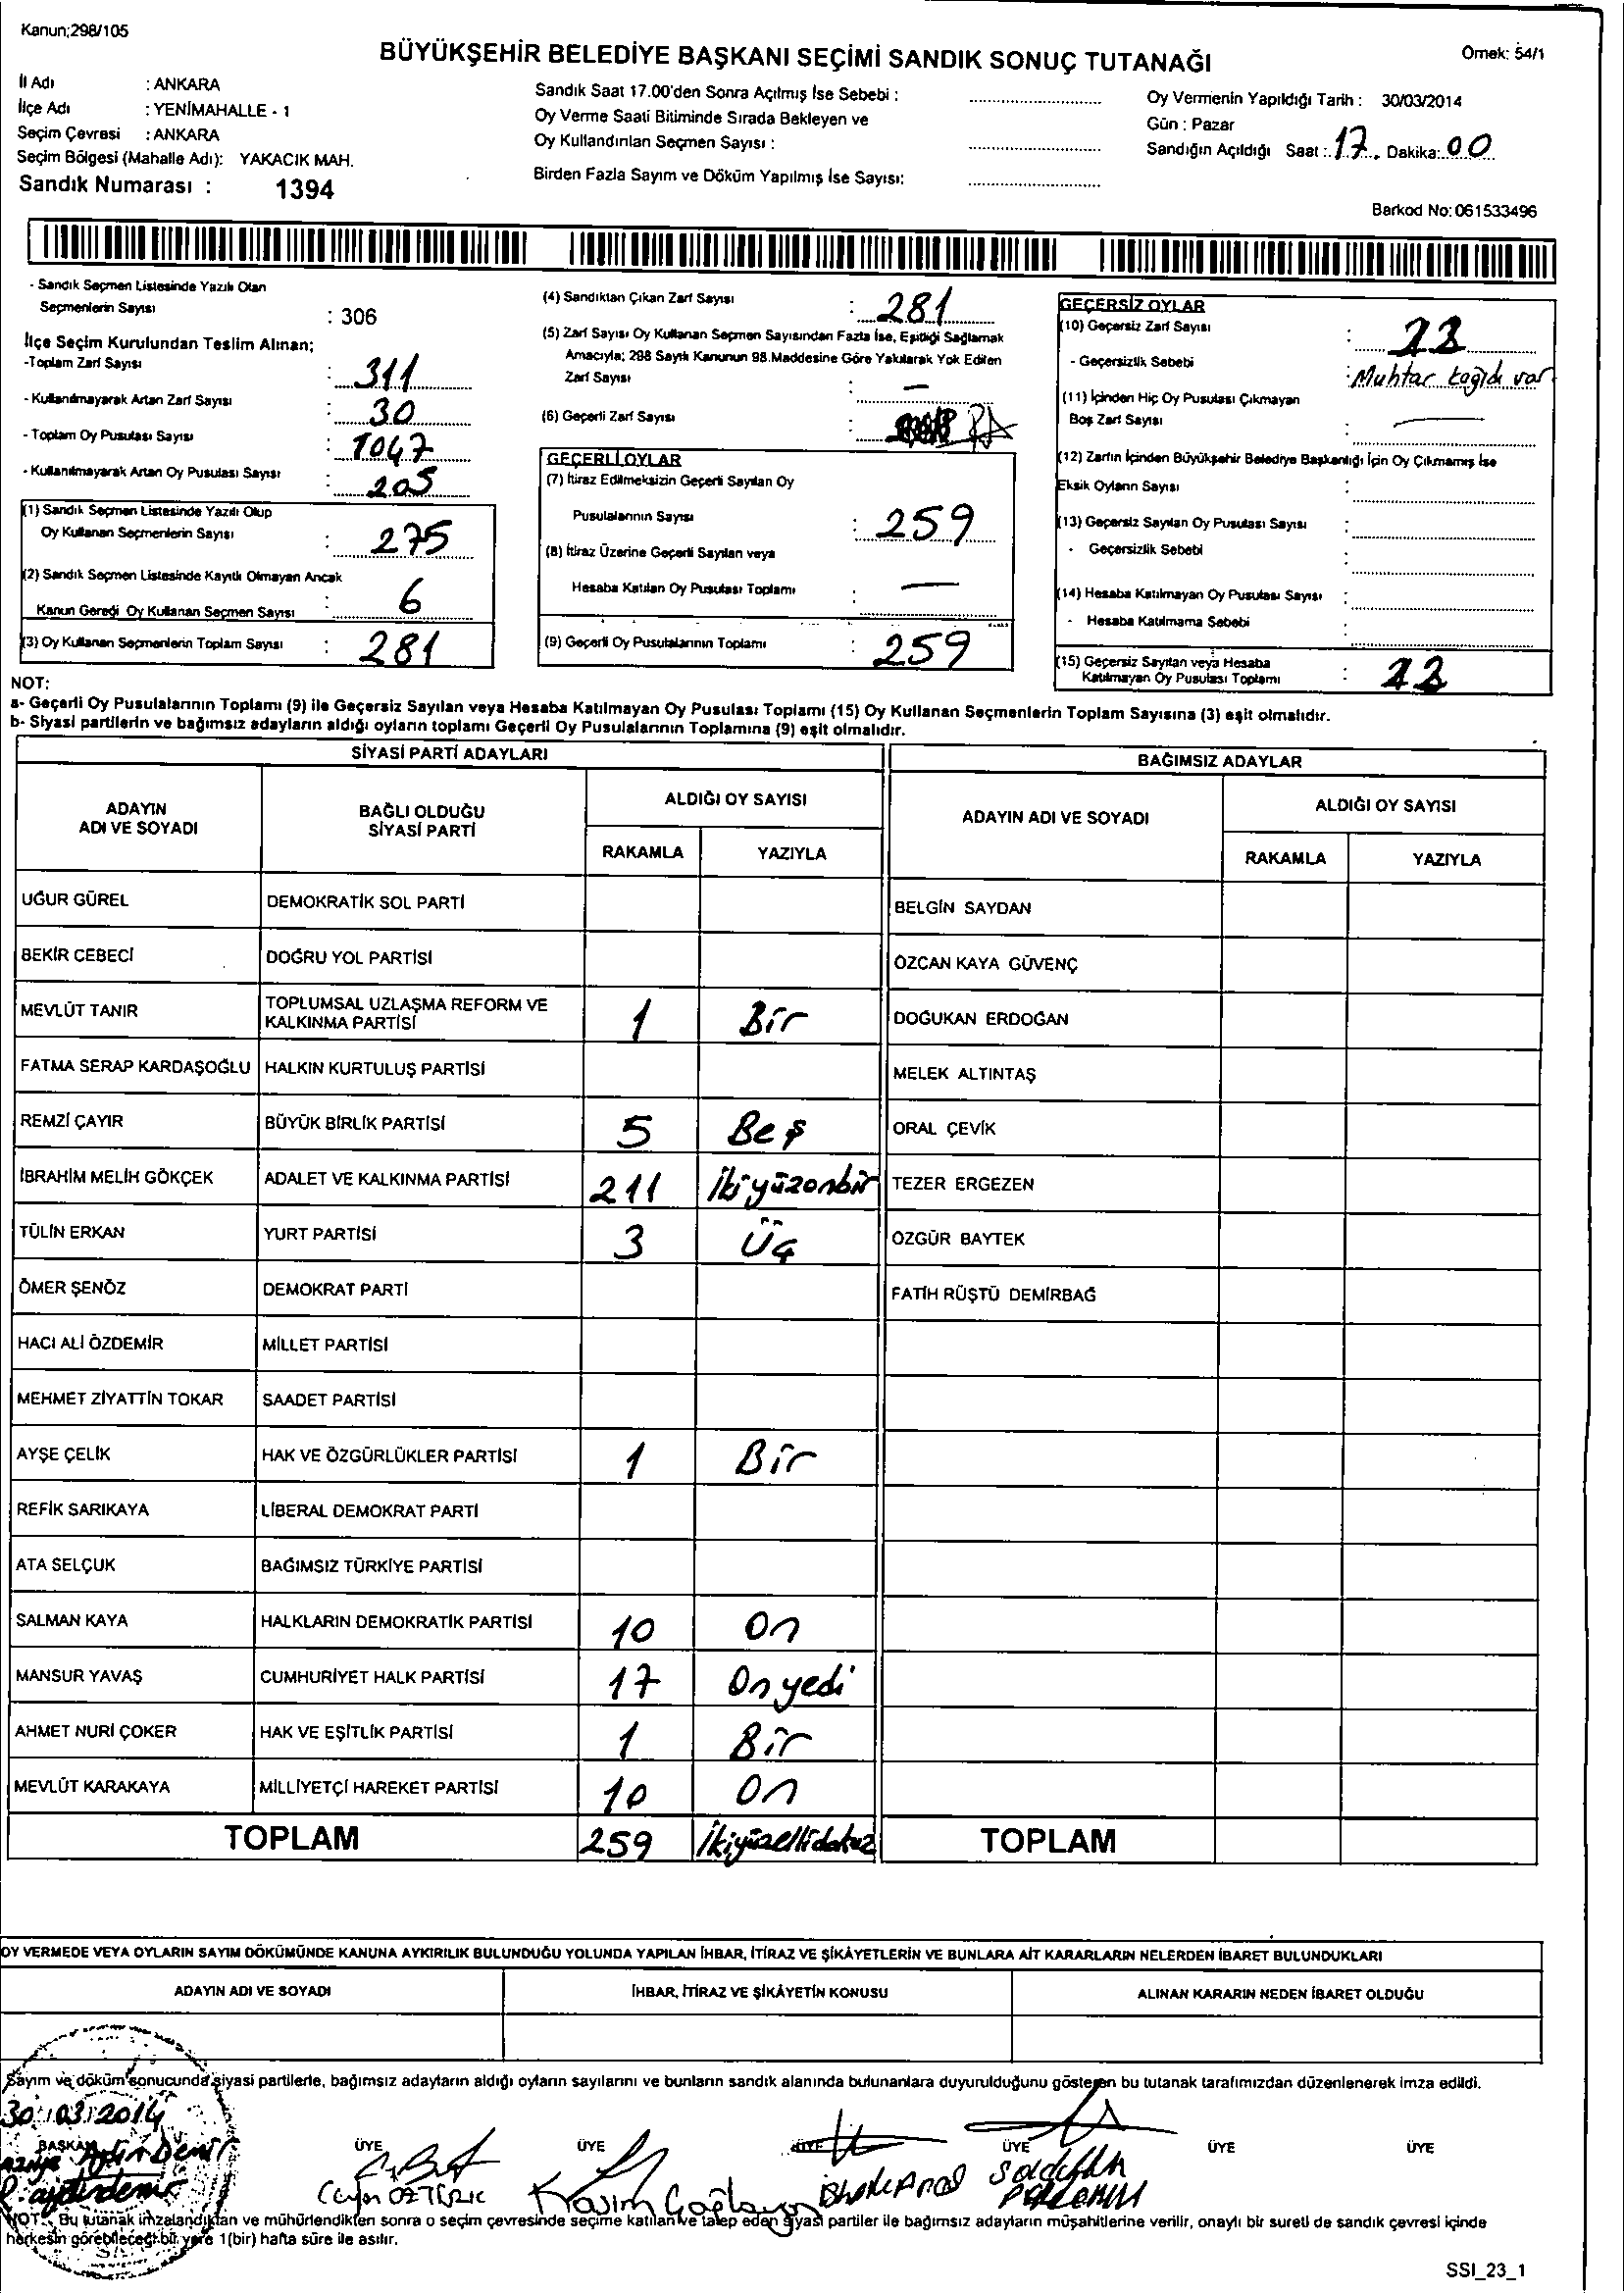 Kanun;298/105
BÜYÜKŞEHİR BELEDİYE BAŞKANI SEÇİMİ SANDIK SONUÇ TUTANAĞI
Örnek: 54/1
İl Adı : ANKARA
İlçe Adı : YENİMAHALLE - 1
Seçim Çevresi : ANKARA
Seçim Bölgesi (Mahalle Adı): YAKACIK MAH.
Sandık Numarası : 1394
Sandık Saat 17.00'den Sonra Açılmış İse Sebebi :
Oy Verme Saati Bitiminde Sırada Bekleyen ve
Oy Kullandırılan Seçmen Sayısı :
Birden Fazla Sayım ve Döküm Yapılmış İse Sayısı:
Oy Vermenin Yapıldığı Tarih : 30/03/2014
Gün : Pazar
Sandığın Açıldığı Saat : 17 Dakika: 00
Barkod No: 061533496
- Sandık Seçmen Listesinde Yazılı Olan
Seçmenlerin Sayısı : 306
İlçe Seçim Kurulundan Teslim Alınan;
-Toplam Zarf Sayısı : 311
- Kullanılmayarak Artan Zarf Sayısı : 30
- Toplam Oy Pusulası Sayısı : 1047
- Kullanılmayarak Artan Oy Pusulası Sayısı : 205
(1) Sandık Seçmen Listesinde Yazılı Olup
Oy Kullanan Seçmenlerin Sayısı : 275
(2) Sandık Seçmen Listesinde Kayıtlı Olmayan Ancak
Kanun Gereği Oy Kullanan Seçmen Sayısı : 6
(3) Oy Kullanan Seçmenlerin Toplam Sayısı : 281
(4) Sandıktan Çıkan Zarf Sayısı : 281
(5) Zarf Sayısı Oy Kullanan Seçmen Sayısından Fazla İse, Eşitliği Sağlamak
Amacıyla; 298 Sayılı Kanunun 98.Maddesine Göre Yakılarak Yok Edilen
Zarf Sayısı : —
(6) Geçerli Zarf Sayısı :
GEÇERLİ OYLAR
(7) İtiraz Edilmeksizin Geçerli Sayılan Oy
Pusulalarının Sayısı : 259
(8) İtiraz Üzerine Geçerli Sayılan veya
Hesaba Katılan Oy Pusulası Toplamı : —
(9) Geçerli Oy Pusulalarının Toplamı : 259
GEÇERSİZ OYLAR
(10) Geçersiz Zarf Sayısı :
- Geçersizlik Sebebi : Muhtar kağıdı var
(11) İçinden Hiç Oy Pusulası Çıkmayan
Boş Zarf Sayısı : —
(12) Zarfın İçinden Büyükşehir Belediye Başkanlığı İçin Oy Çıkmamış İse
Eksik Oyların Sayısı :
(13) Geçersiz Sayılan Oy Pusulası Sayısı :
- Geçersizlik Sebebi :
(14) Hesaba Katılmayan Oy Pusulası Sayısı :
- Hesaba Katılmama Sebebi :
(15) Geçersiz Sayılan veya Hesaba
Katılmayan Oy Pusulası Toplamı :
NOT:
a- Geçerli Oy Pusulalarının Toplamı (9) ile Geçersiz Sayılan veya Hesaba Katılmayan Oy Pusulası Toplamı (15) Oy Kullanan Seçmenlerin Toplam Sayısına (3) eşit olmalıdır.
b- Siyasi partilerin ve bağımsız adayların aldığı oyların toplamı Geçerli Oy Pusulalarının Toplamına (9) eşit olmalıdır.
SİYASİ PARTİ ADAYLARI
BAĞIMSIZ ADAYLAR
ADAYIN ADI VE SOYADI
BAĞLI OLDUĞU SİYASİ PARTİ
ALDIĞI OY SAYISI
RAKAMLA YAZIYLA
ADAYIN ADI VE SOYADI
ALDIĞI OY SAYISI
RAKAMLA YAZIYLA
UĞUR GÜREL DEMOKRATİK SOL PARTİ BELGİN SAYDAN
BEKİR CEBECİ DOĞRU YOL PARTİSİ ÖZCAN KAYA GÜVENÇ
MEVLÜT TANIR TOPLUMSAL UZLAŞMA REFORM VE KALKINMA PARTİSİ 1 Bir DOĞUKAN ERDOĞAN
FATMA SERAP KARDAŞOĞLU HALKIN KURTULUŞ PARTİSİ MELEK ALTINTAŞ
REMZİ ÇAYIR BÜYÜK BİRLİK PARTİSİ 5 Beş ORAL ÇEVİK
İBRAHİM MELİH GÖKÇEK ADALET VE KALKINMA PARTİSİ 211 İkiyüzonbir TEZER ERGEZEN
TÜLİN ERKAN YURT PARTİSİ 3 Üç ÖZGÜR BAYTEK
ÖMER ŞENÖZ DEMOKRAT PARTİ FATİH RÜŞTÜ DEMİRBAĞ
HACI ALİ ÖZDEMİR MİLLET PARTİSİ
MEHMET ZİYATTİN TOKAR SAADET PARTİSİ
AYŞE ÇELİK HAK VE ÖZGÜRLÜKLER PARTİSİ 1 Bir
REFİK SARIKAYA LİBERAL DEMOKRAT PARTİ
ATA SELÇUK BAĞIMSIZ TÜRKİYE PARTİSİ
SALMAN KAYA HALKLARIN DEMOKRATİK PARTİSİ 10 On
MANSUR YAVAŞ CUMHURİYET HALK PARTİSİ 17 Onyedi
AHMET NURİ ÇOKER HAK VE EŞİTLİK PARTİSİ 1 Bir
MEVLÜT KARAKAYA MİLLİYETÇİ HAREKET PARTİSİ 10 On
TOPLAM 259 İkiyüzellidokuz TOPLAM
OY VERMEDE VEYA OYLARIN SAYIM DÖKÜMÜNDE KANUNA AYKIRILIK BULUNDUĞU YOLUNDA YAPILAN İHBAR, İTİRAZ VE ŞİKÂYETLERİN VE BUNLARA AİT KARARLARIN NELERDEN İBARET BULUNDUKLARI
ADAYIN ADI VE SOYADI İHBAR, İTİRAZ VE ŞİKÂYETİN KONUSU ALINAN KARARIN NEDEN İBARET OLDUĞU
Sayım ve döküm sonucunda siyasi partilerle, bağımsız adayların aldığı oyların sayılarını ve bunların sandık alanında bulunanlara duyurulduğunu gösteren bu tutanak tarafımızdan düzenlenerek imza edildi.
30/03/2014
BAŞKAN ÜYE ÜYE ÜYE ÜYE ÜYE ÜYE
NOT: Bu tutanak imzalandıktan ve mühürlendikten sonra o seçim çevresinde seçime katılan ve talep eden siyasi partiler ile bağımsız adayların müşahitlerine verilir, onaylı bir sureti de sandık çevresi içinde
herkesin görebileceği bir yere 1(bir) hafta süre ile asılır.
SSI_23_1